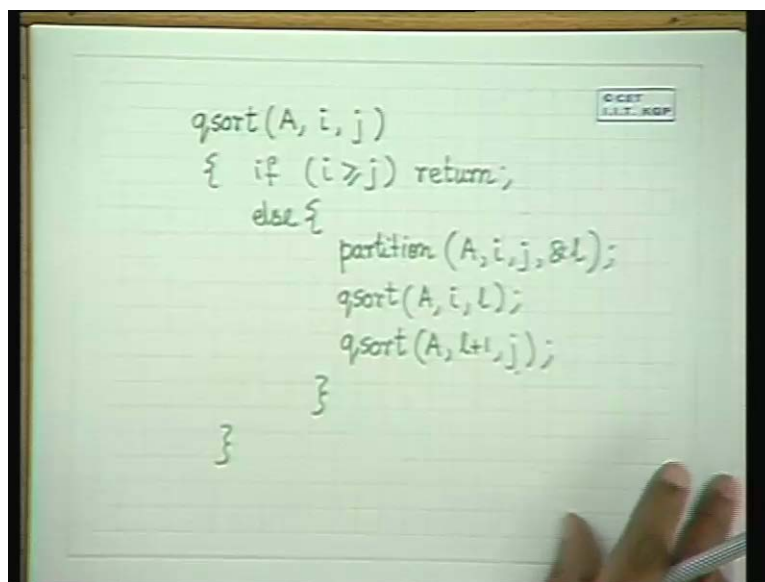 © CET
I.I.T. KGP
qsort(A, i, j)
{ if (i ≥ j) return;
else {
partition (A, i, j, &l);
qsort(A, i, l);
qsort(A, l+1, j);
}
}